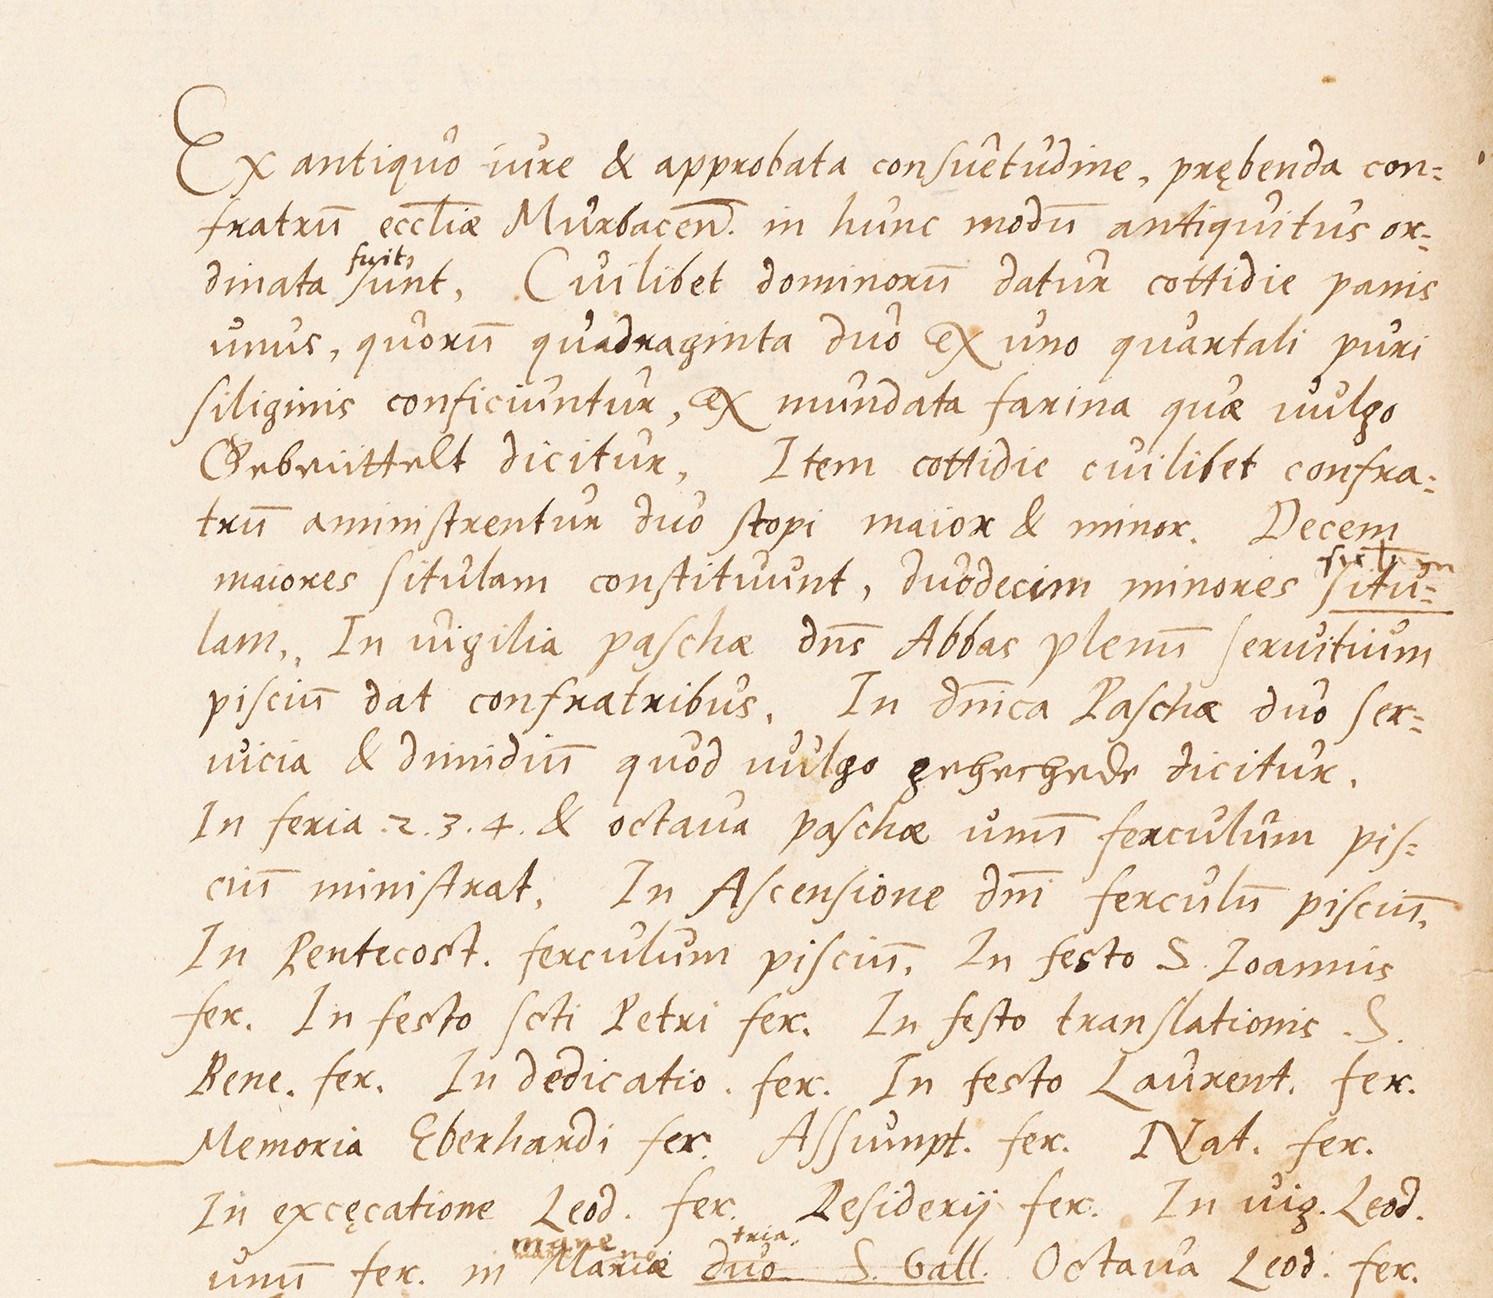 Ex antiquo iure & approbata consuetudine, prębenda con=
fratrū eccl̄iæ Murbaceñ. in hunc modū antiquitus or=
fuit,
dinata sunt, Cuilibet dominorū datur cottidie panis
unus, quorū quadraginta duo ex uno quartali puri
siliginis conficiuntur, ex mundata farina quæ uulgo
Gebeüttelt dicitur, Item cottidie cuilibet confra=
trū aministrentur duo stopi maior & minor. Decem
maiores situlam constituunt, duodecim minores situ=
lam,. In uigilia paschæ dn̄s Abbas plenū seruitium
pisciū dat confratribus. In dn̄ica Paschæ duo ser=
uicia & dimidiū quod uulgo dicitur.
In feria .2.3.4. & octaua paschæ unū ferculum pis=
ciū ministrat. In Ascensione dn̄i ferculū pisciū.
In Pentecost. ferculum pisciū. In festo S. Ioannis
fer. In festo scti Petri fer. In festo translationis .S.
Bene. fer. In dedicatio. fer. In festo Laurent. fer.
Memoria Eberhardi fer. Assumpt. fer. Nat. fer.
In excęcatione Leod. fer. Desiderij fer. In uig. Leod.
mane tria.
unū fer. in Mariæ duo S. Gall. Octaua Leod. fer.